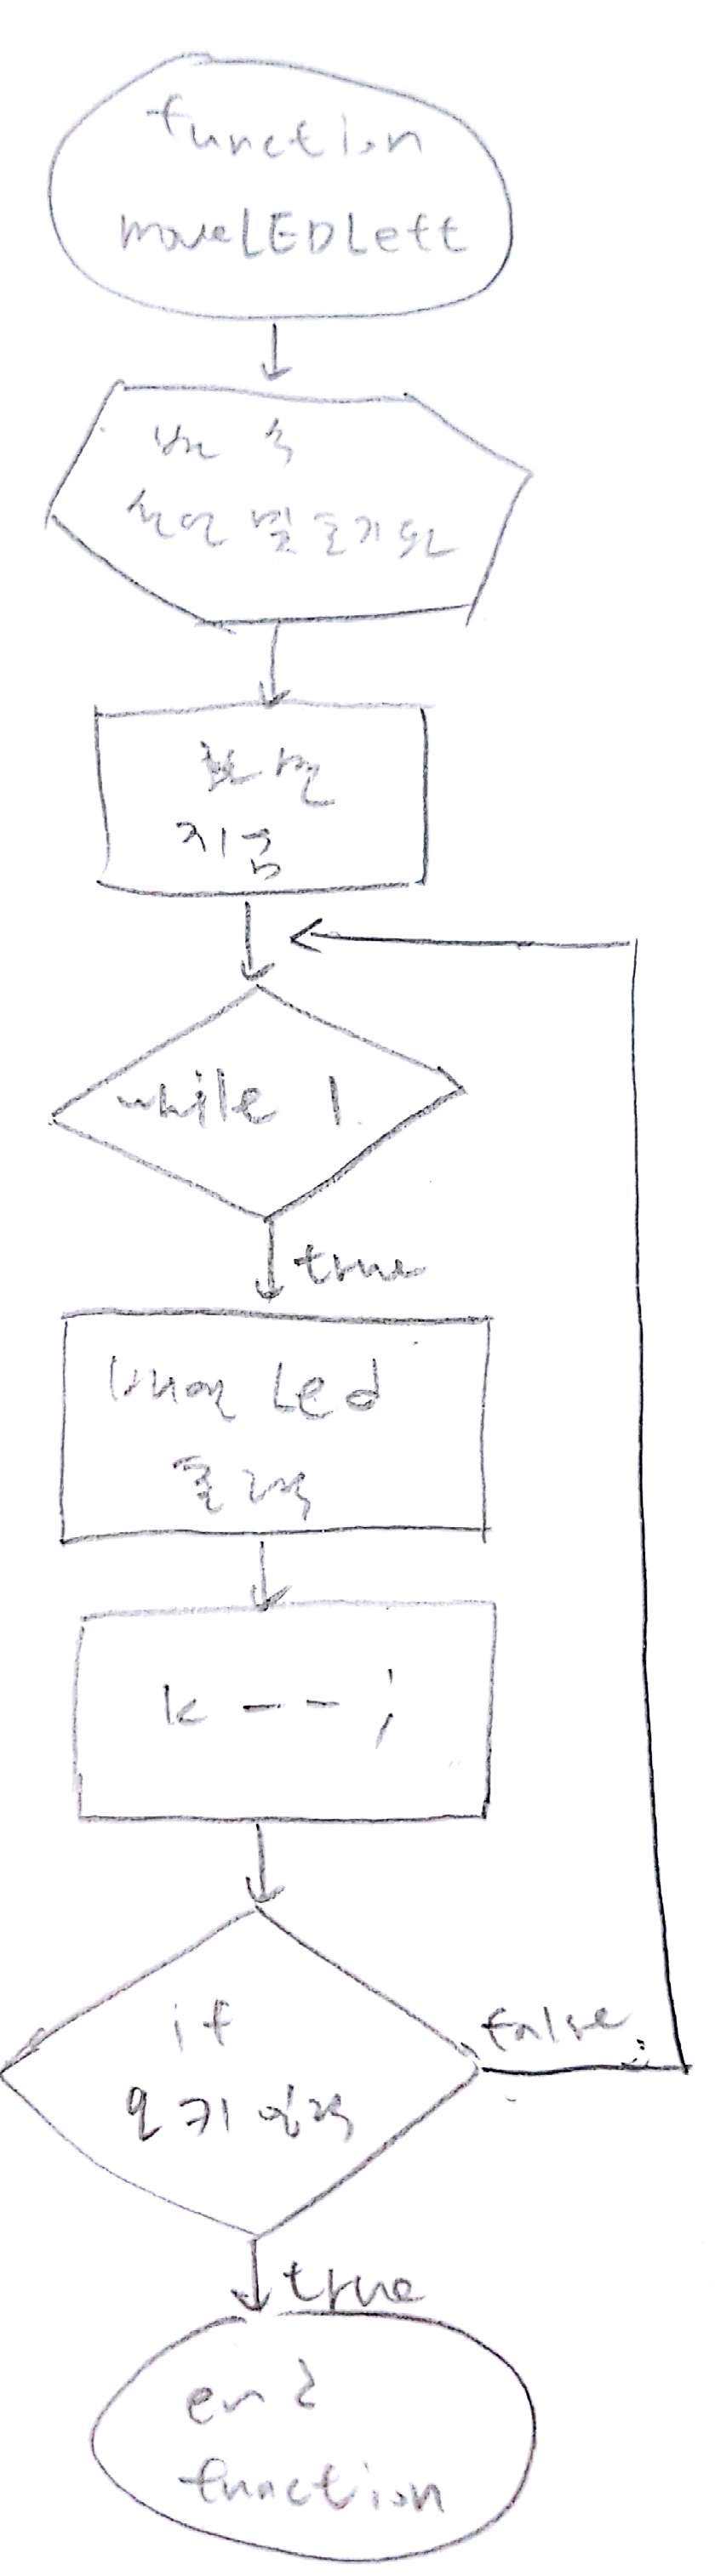 function
moveLEDLeft
변수
선언 및 초기화
화면
지움
while 1
true
배열 Led
출력
k -- ;
if
키 입력
false
true
end
function